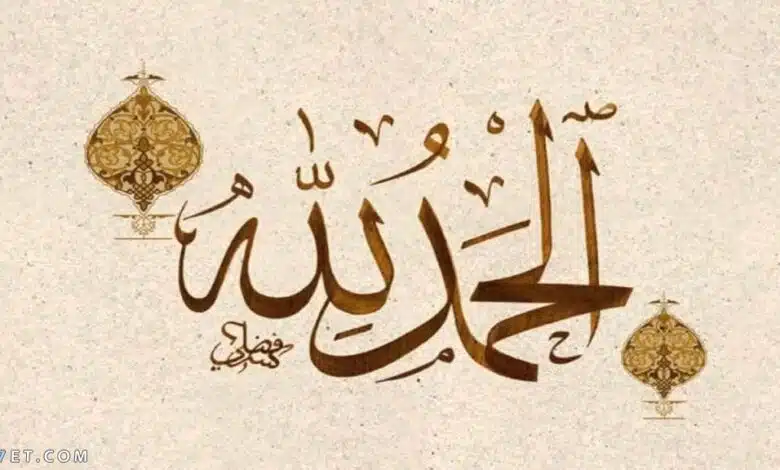 الحَمْدُ لِلّٰهِ
7ET.COM